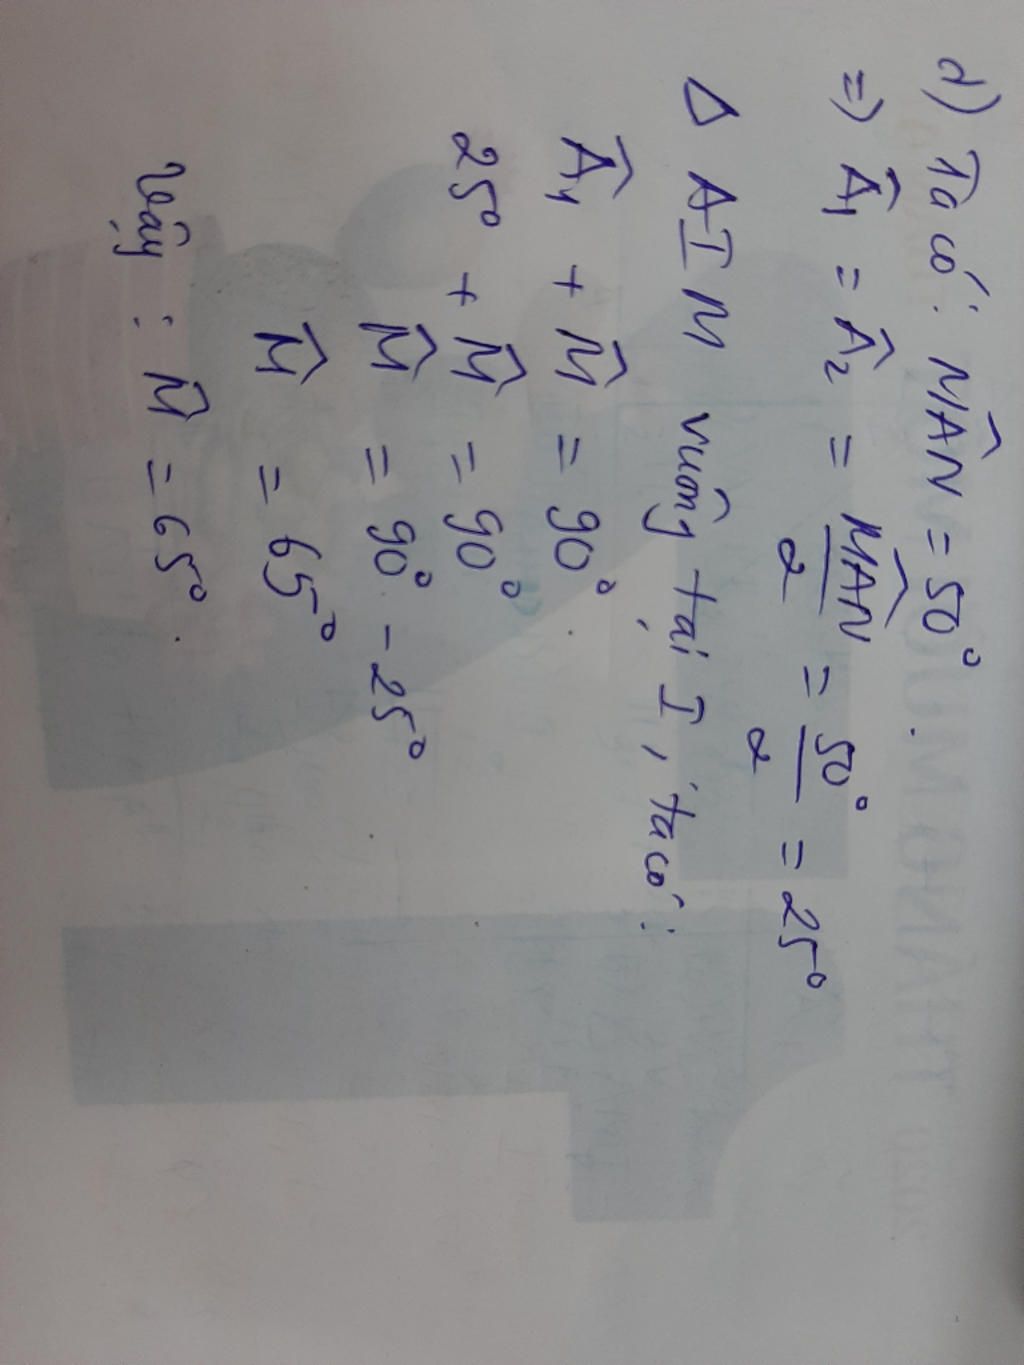 d) Ta có: M̂AN = 50°.
=> Â₁ = Â₂ = M̂AN/2 = 50°/2 = 25°
Δ AIM vuông tại I, ta có:
Â₁ + M̂ = 90°
25° + M̂ = 90°
M̂ = 90° - 25°
M̂ = 65°
Vậy : M̂ = 65°.